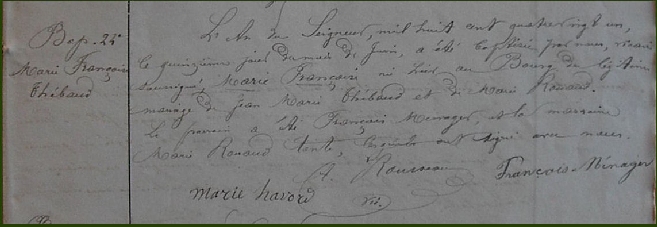 Bap. 24e
Marie François
Thébaud
L'An du Seigneur, mil huit cent quatre vingt un,
le quinzième jour du mois de Juin, a été baptisé par nous, vicaire
Marie François né hier au Bourg de légitime
mariage de Jean Marie Thébaud et de Marie Rouaud.
le parrain a été François Ménager, et la marraine
Marie Rouaud tante, lesquels ont signé avec nous.
A. Rousseau
François Ménager
Marie havord
vic.